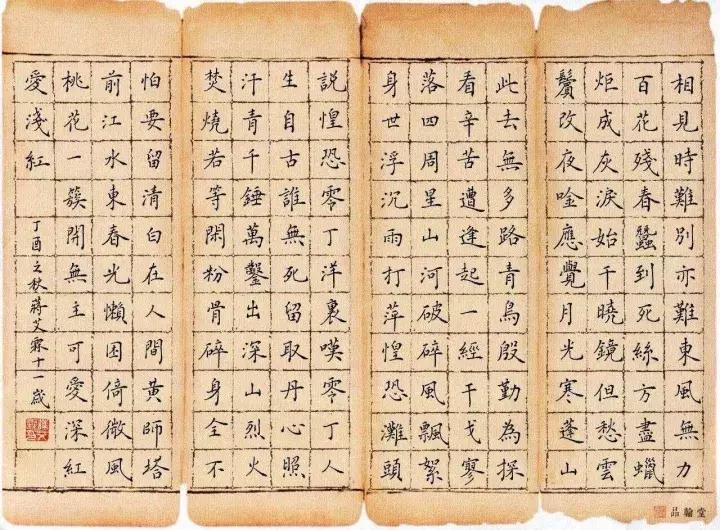 相見時難別亦難東風無力
百花殘春蠶到死絲方盡蠟
炬成灰淚始干曉鏡但愁雲
鬢改夜唫應覺月光寒蓬山
此去無多路青鳥殷勤為探
看辛苦遭逢起一經干戈寥
落四周星山河破碎風飄絮
身世浮沉雨打萍惶恐灘頭
說惶恐零丁洋裏嘆零丁人
生自古誰無死留取丹心照
汗青千錘萬鑿出深山烈火
焚燒若等閑粉骨碎身全不
怕要留清白在人間黃師塔
前江水東春光懶困倚微風
桃花一簇開無主可愛深紅
愛淺紅
丁酉之秋蔣艾霖十一歲
品翰堂